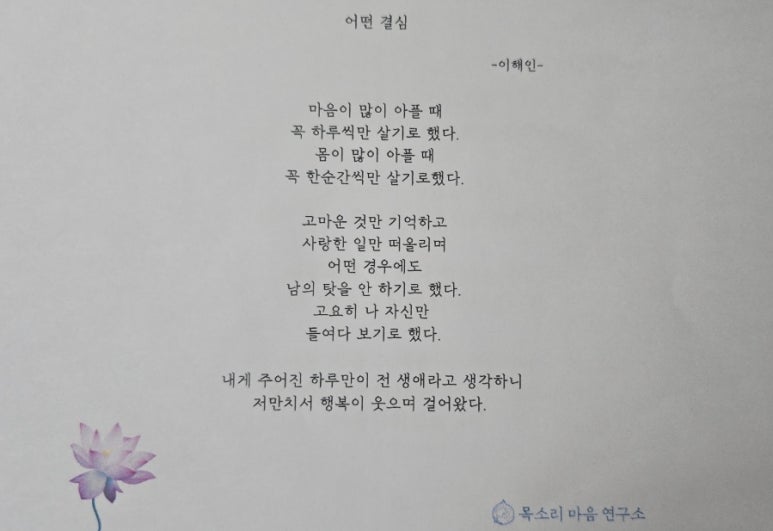 어떤 결심
-이해인-
마음이 많이 아플 때
꼭 하루씩만 살기로 했다.
몸이 많이 아플 때
꼭 한순간씩만 살기로했다.
고마운 것만 기억하고
사랑한 일만 떠올리며
어떤 경우에도
남의 탓을 안 하기로 했다.
고요히 나 자신만
들여다 보기로 했다.
내게 주어진 하루만이 전 생애라고 생각하니
저만치서 행복이 웃으며 걸어왔다.
목소리 마음 연구소